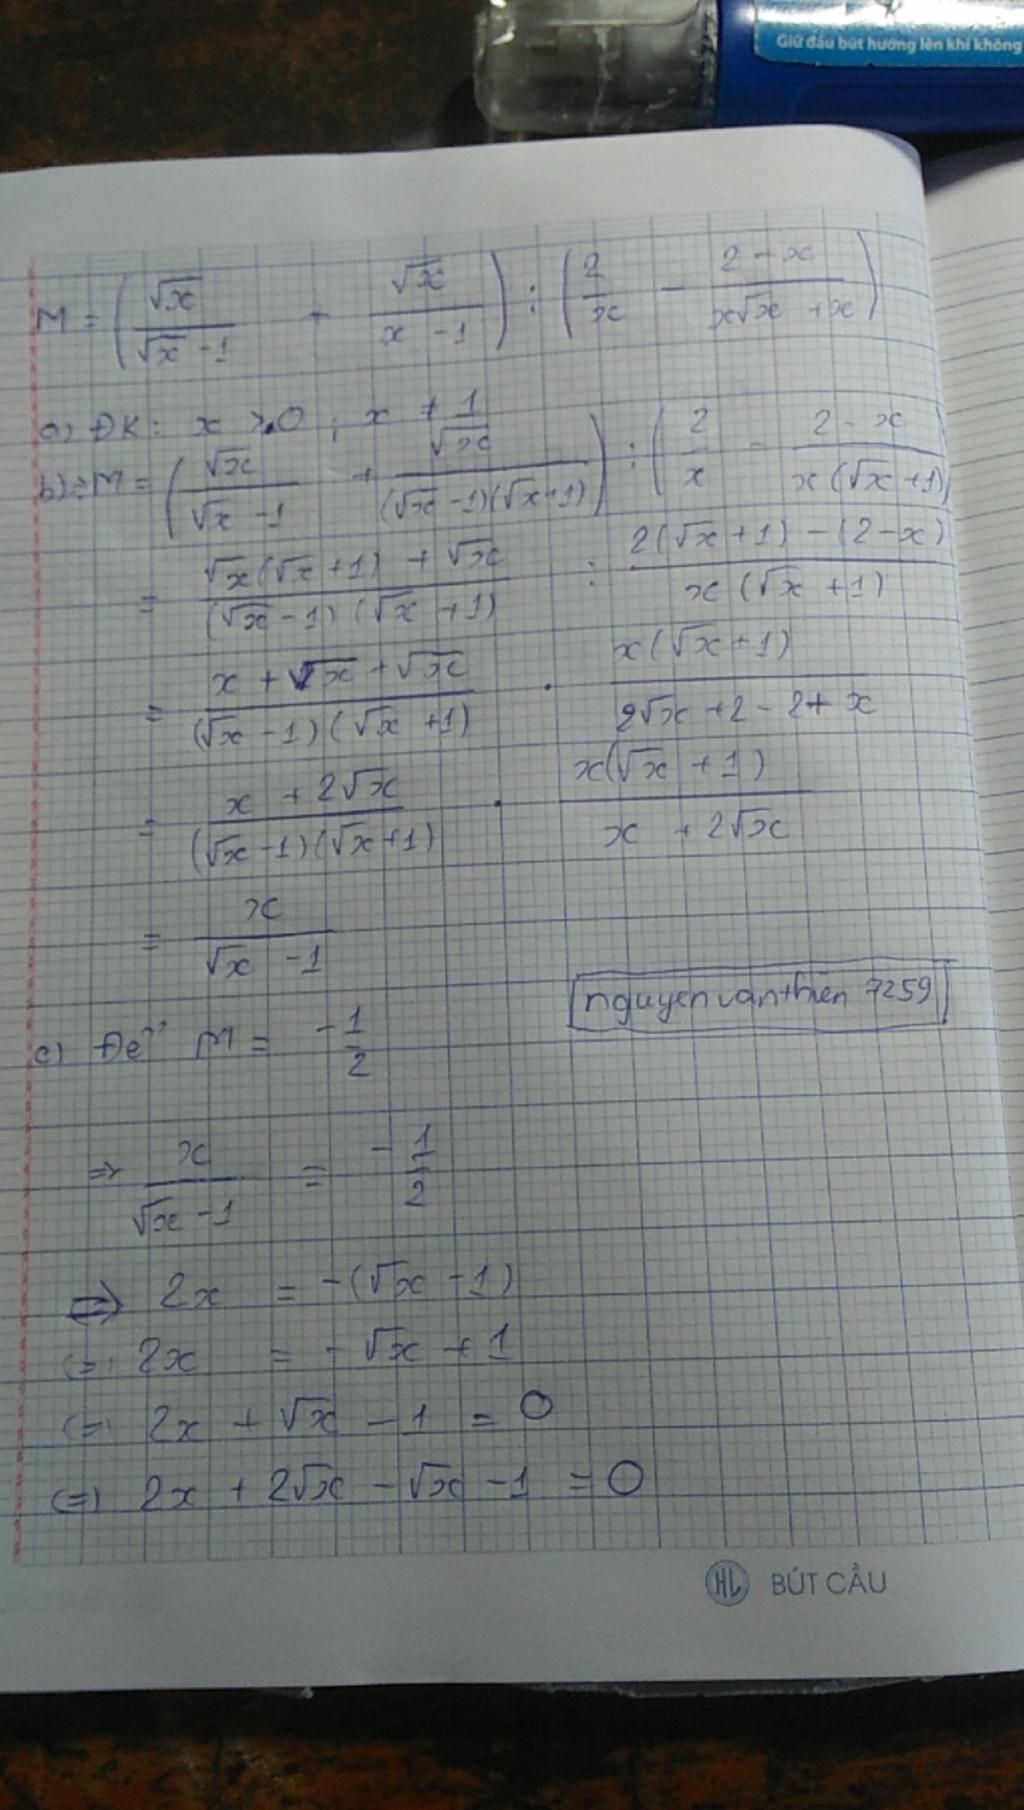 Giữ đầu bút hướng lên khi không
M = (√x/(√x - 1) + √x/(x - 1)) : (2/x - (2 - x)/(x√x + x))
a) ĐK: x > 0 ; x ≠ 1
b) M = (√x/(√x - 1) + √x/((√x - 1)(√x + 1))) : (2/x - (2 - x)/(x(√x + 1)))
= (√x(√x + 1) + √x)/((√x - 1)(√x + 1)) : (2(√x + 1) - (2 - x))/(x(√x + 1))
= (x + √x + √x)/((√x - 1)(√x + 1)) . x(√x + 1)/(2√x + 2 - 2 + x)
= (x + 2√x)/((√x - 1)(√x + 1)) . x(√x + 1)/(x + 2√x)
= x/(√x - 1)
nguyenvanthien 7259
c) Để M = -1/2
=> x/(√x - 1) = -1/2
=> 2x = -(√x - 1)
(=) 2x = -√x + 1
(=) 2x + √x - 1 = 0
(=) 2x + 2√x - √x - 1 = 0
HL BÚT CẦU